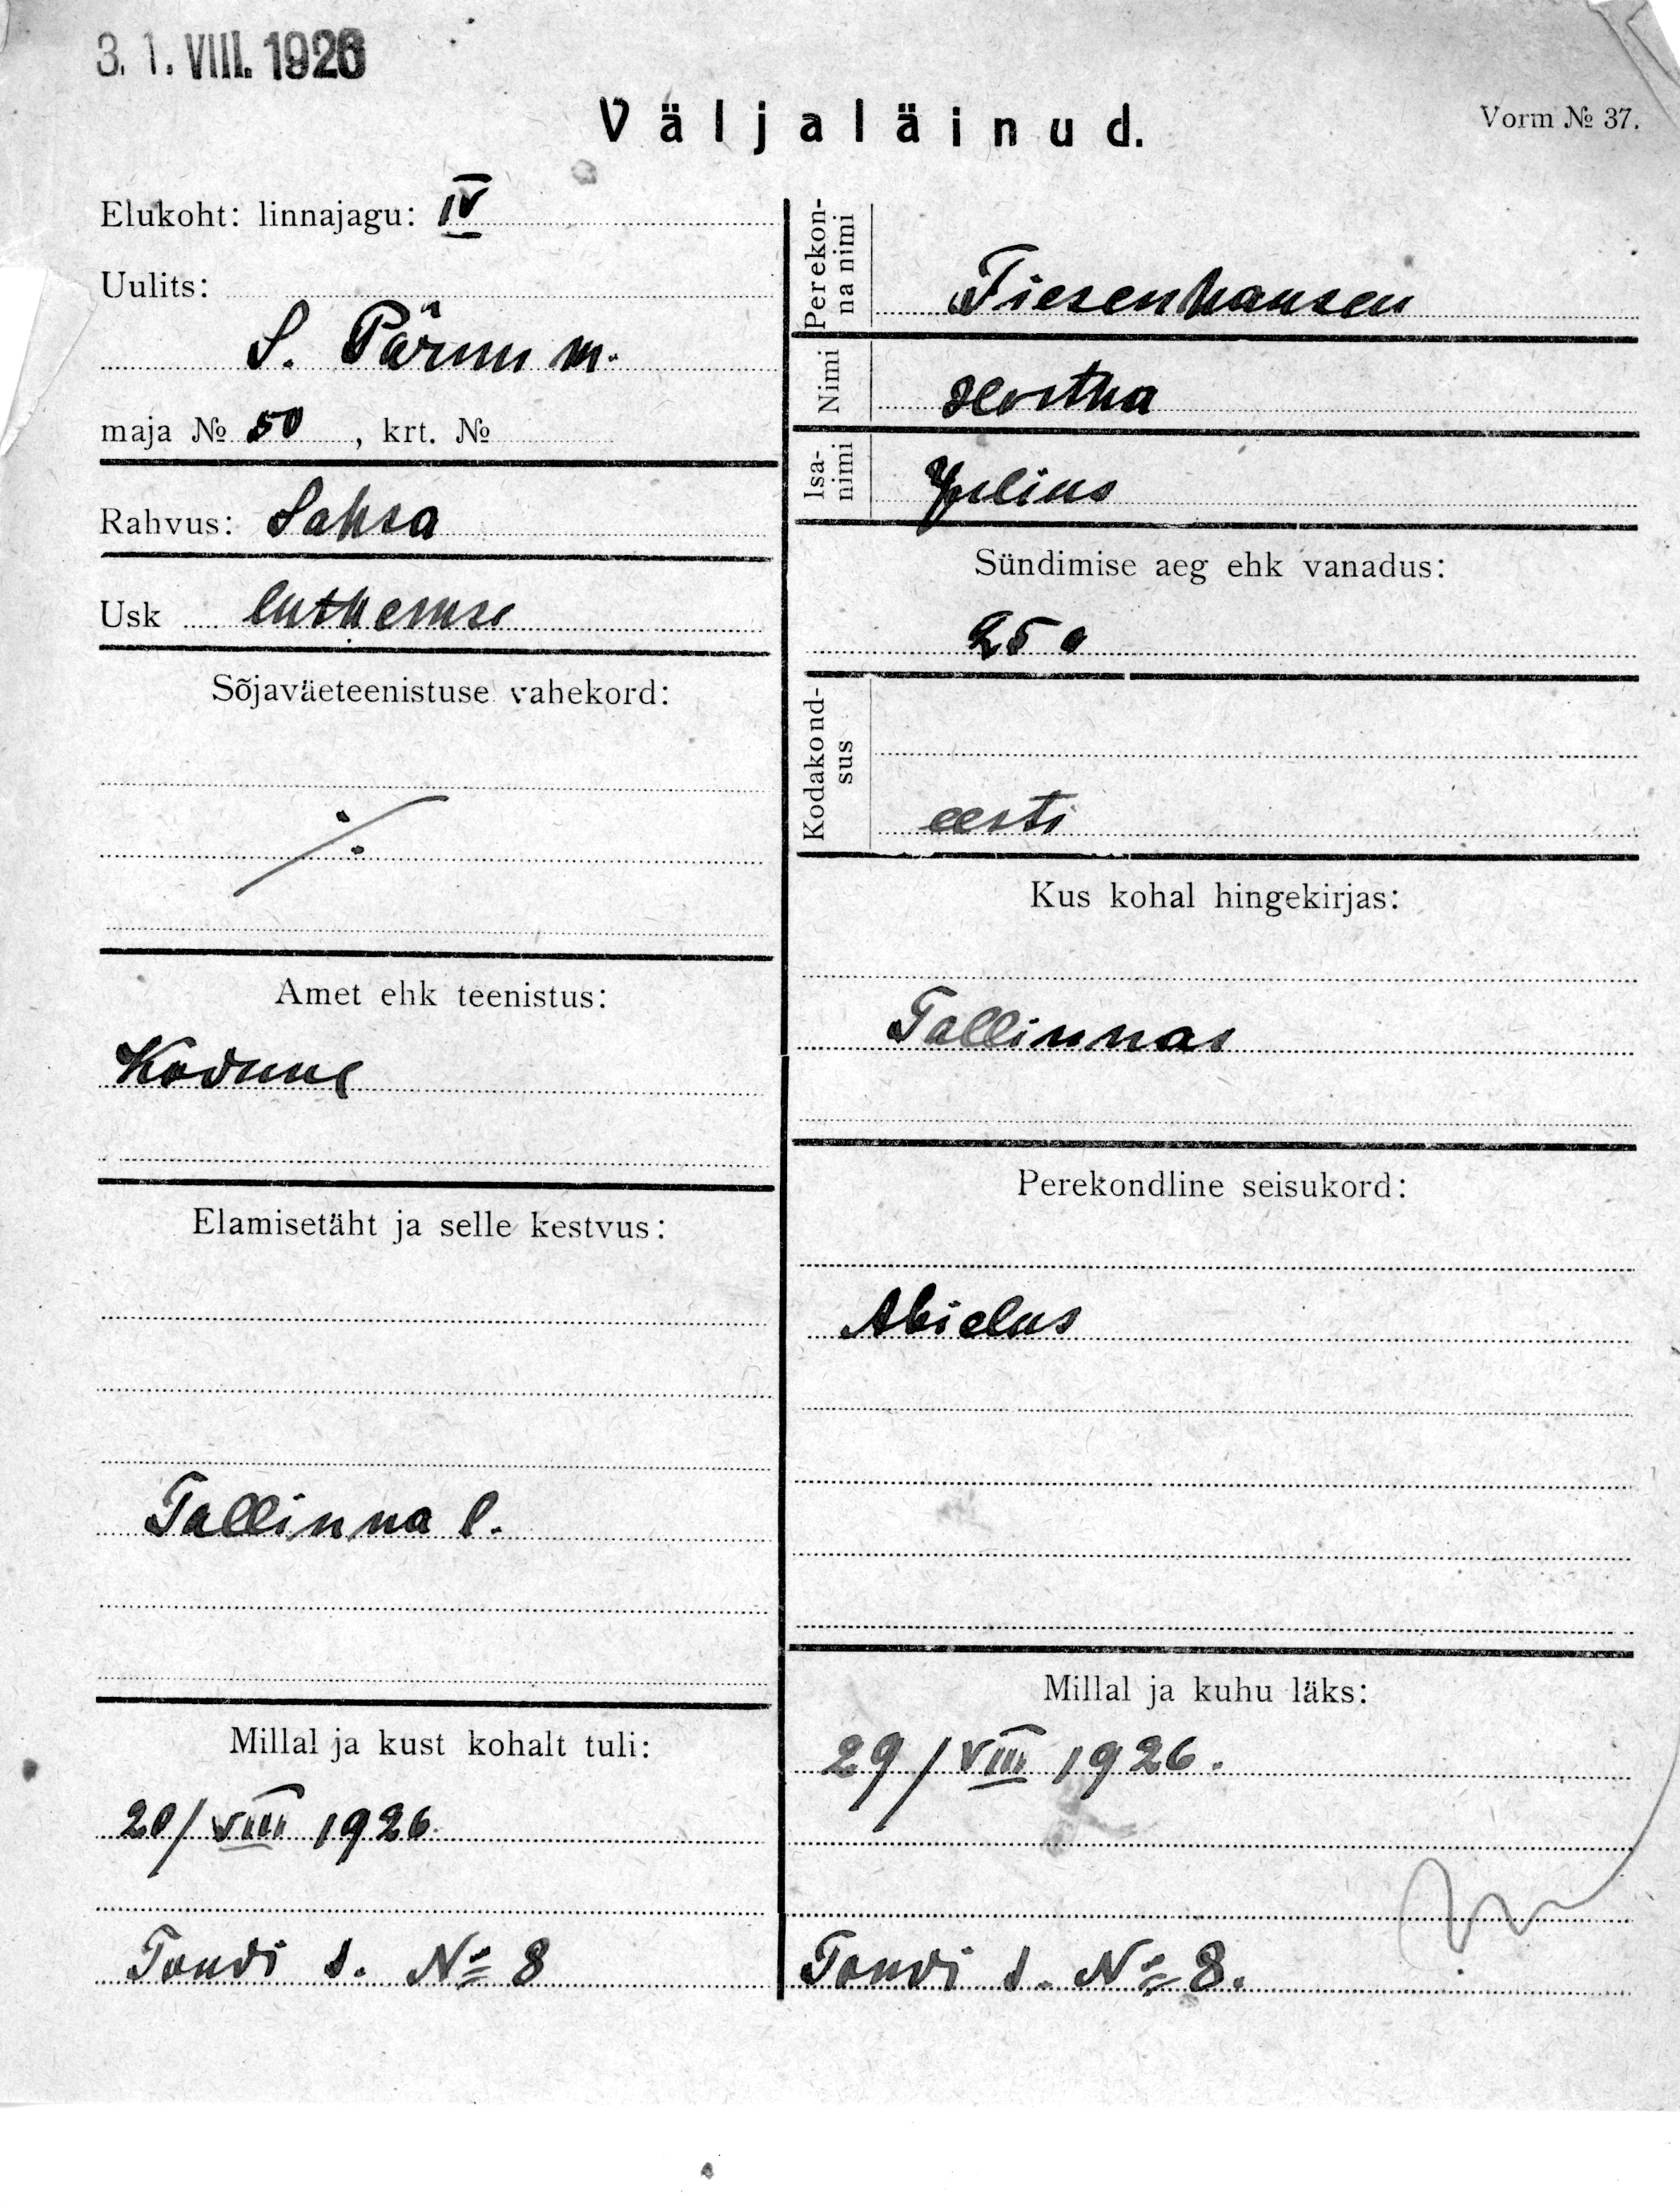 3.1.VIII.1926
Väljaläinud.
Vorm № 37.
Elukoht: linnajagu: IV
Uulits:
S. Pärnu m.
maja № 50, krt. №
Rahvus: Saksa
Usk lutheruse
Sõjaväeteenistuse vahekord:
⁒
Amet ehk teenistus:
Kodune
Elamisetäht ja selle kestvus:
Tallinna l.
Millal ja kust kohalt tuli:
20/VIII 1926.
Tondi t. № 8
Perekon-
na nimi
Tiesenhausen
Nimi
Hertha
Isa-
nimi
Julius
Sündimise aeg ehk vanadus:
25 a
Kodakond-
sus
eesti
Kus kohal hingekirjas:
Tallinnas
Perekondline seisukord:
Abielus
Millal ja kuhu läks:
29/VIII 1926.
Tondi t. № 8.